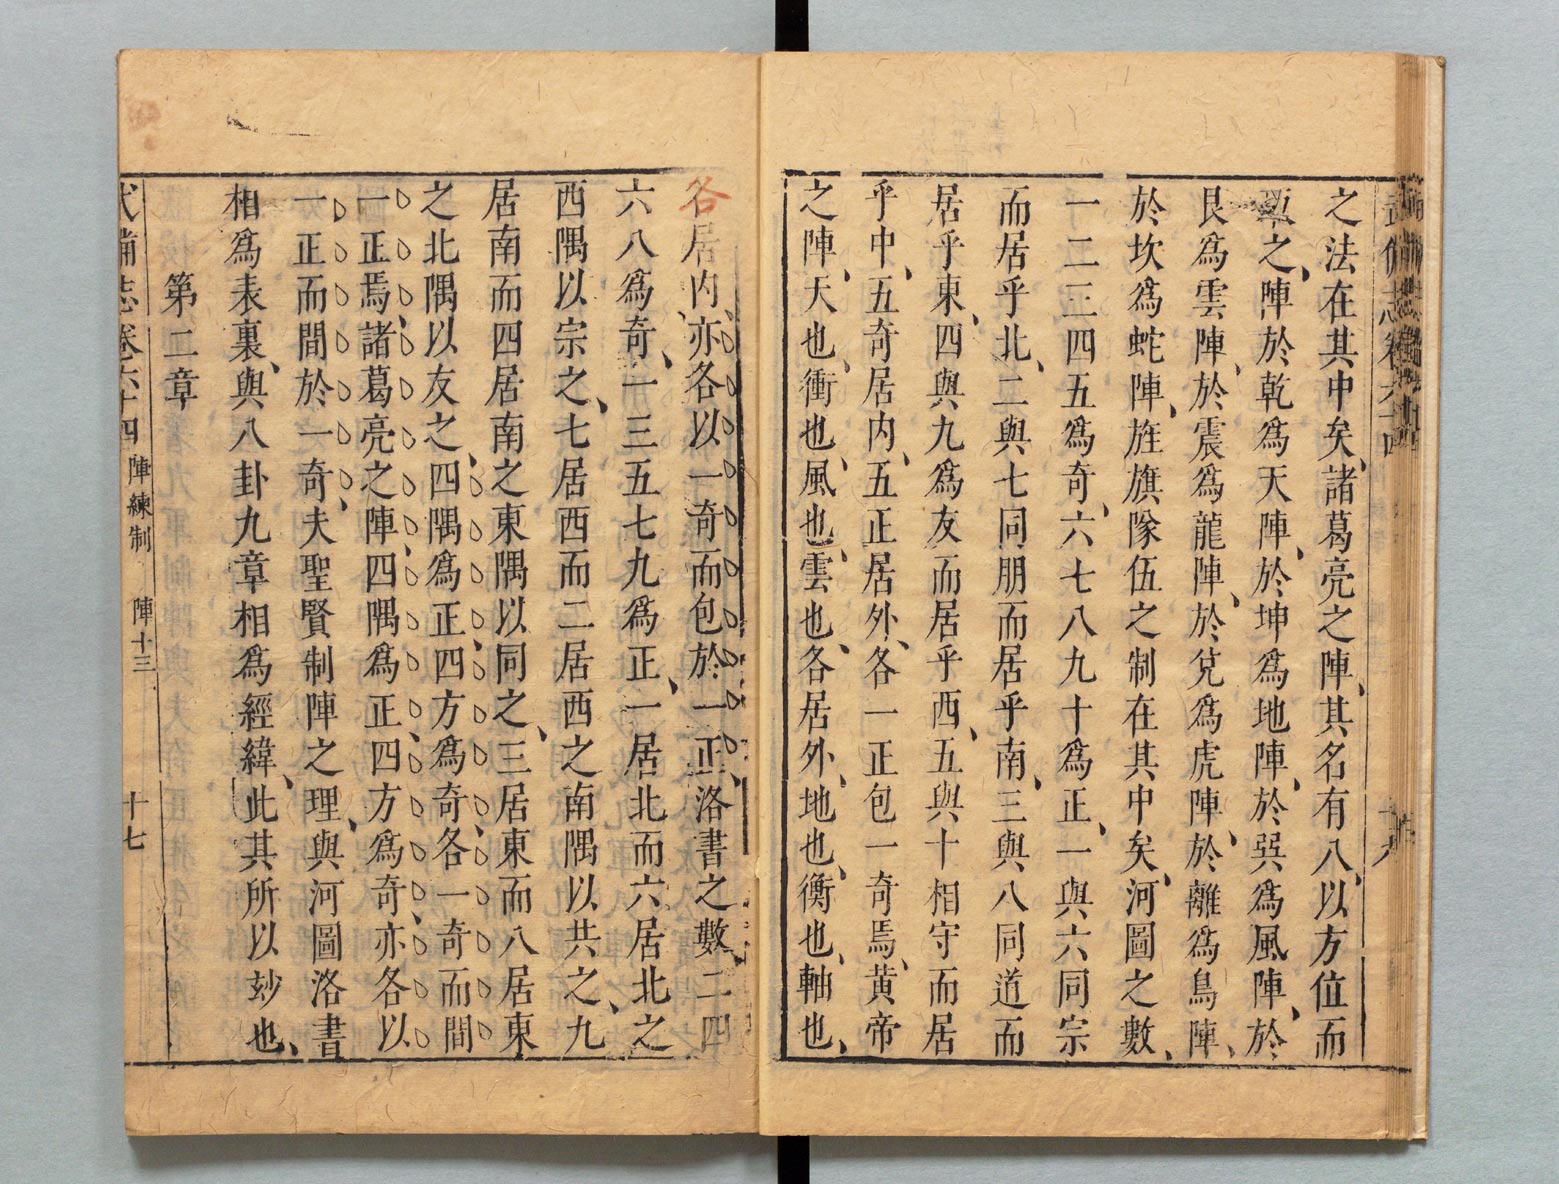 武備志卷六十四
十六
之法在其中矣、諸葛亮之陣、其名有八、以方位而
之、陣於乾爲天陣、於坤爲地陣、於巽爲風陣、於
艮爲雲陣、於震爲龍陣、於兌爲虎陣、於離爲鳥陣、
於坎爲蛇陣、旌旗隊伍之制在其中矣、河圖之數、
一二三四五爲奇、六七八九十爲正、一與六同宗
而居乎北、二與七同朋而居乎南、三與八同道而
居乎東、四與九爲友而居乎西、五與十相守而居
乎中、五奇居內、五正居外、各一正包一奇焉、黃帝
之陣、天也、衝也、風也、雲也、各居外、地也、衡也、軸也、
各居內、亦各以一奇而包於一正、洛書之數、二四
六八爲奇、一三五七九爲正、一居北而六居北之
西隅以宗之、七居西而二居西之南隅以共之、九
居南而四居南之東隅以同之、三居東而八居東
之北隅以友之、四隅爲正、四方爲奇、各一奇而間
一正焉、諸葛亮之陣、四隅爲正、四方爲奇、亦各以
一正而間於一奇、夫聖賢制陣之理、與河圖洛書
相爲表裏、與八卦九章相爲經緯、此其所以玅也、
第二章
武備志卷六十四 陣練制 陣十三 十七